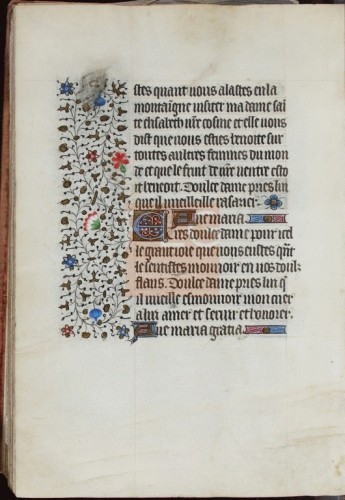 stes quant vous alastes en la
montaigne visiter ma dame sai
te elisabeth vre cosine et elle vous
dist que vous estes benoite sur
toutes aultres femmes du mon
de et que le fruit de vre ventre esto
it benoit. Doulce dame pries luy
que il vueille
Aue maria.
doulce dame pour icel
le grant ioie que vous eustes qnt
le sentistes mouuoir en vos doulz
flans. Doulce dame pries luy q
il vueille esmouuoir mon cuer
a lui amer et seruir et honorer.
Aue maria gratia